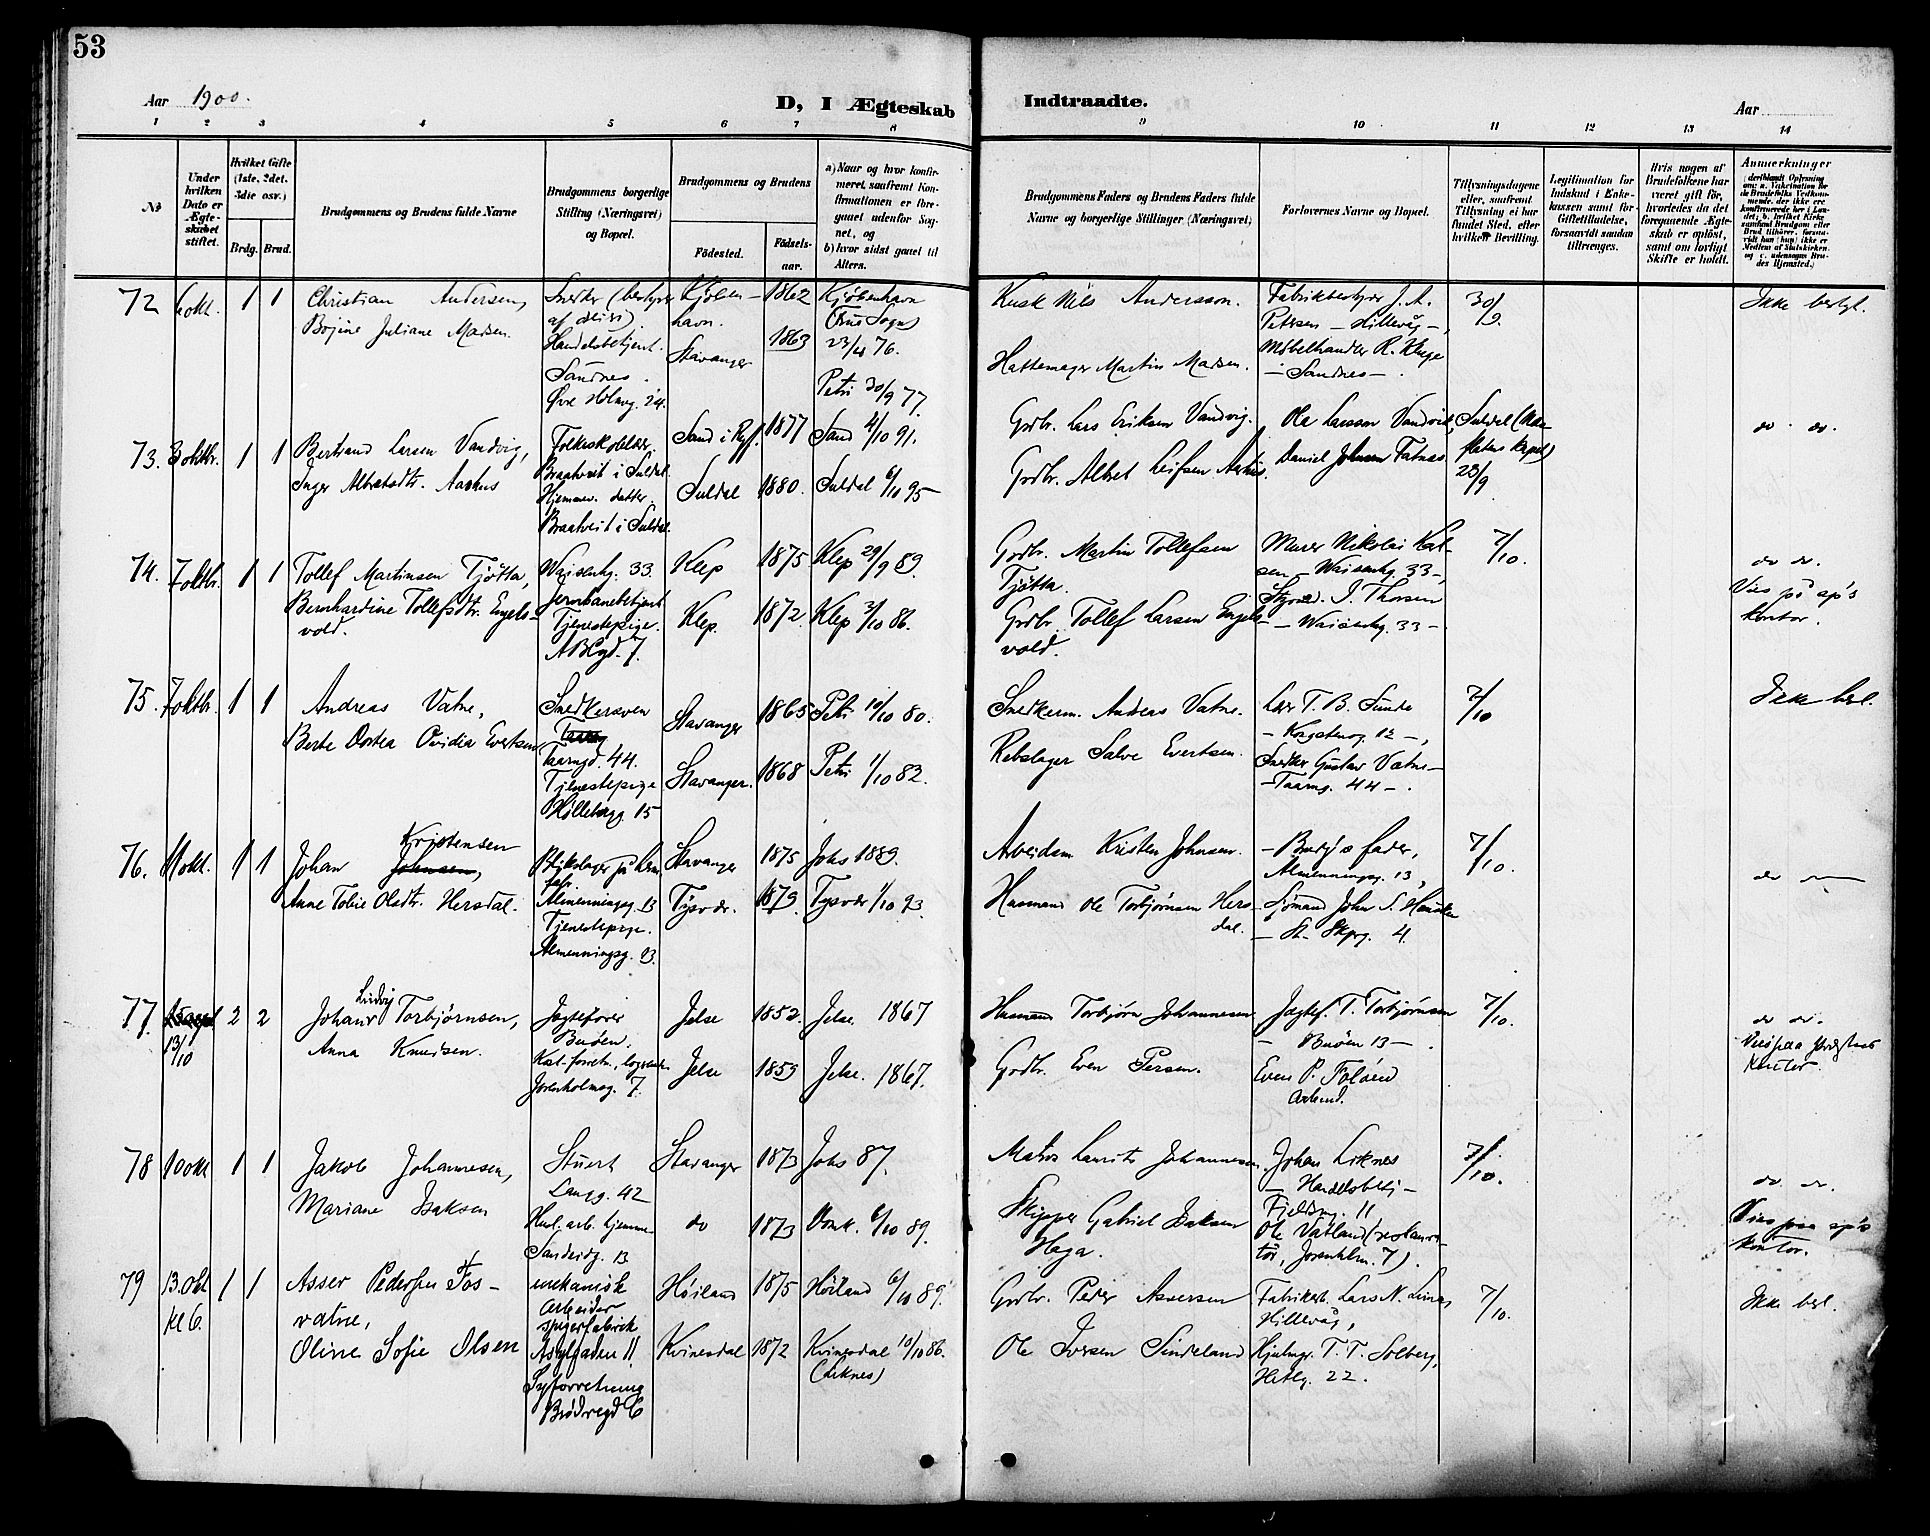 53
Aar 1900.
D, I Ægteskab Indtraadte.
Aar
1 2 3 4 5 6 7 8 9 10 11 12 13 14
No
Under hvilken Dato er Ægteskabet stiftet.
Hvilket Gifte (1ste, 2det, 3die osv.)
Brdg. Brud.
Brudgommens og Brudens fulde Navne
Brudgommens borgerlige Stilling (Næringsvei) og Bopæl.
Brudgommens og Brudens
Fødested.
Fødselsaar.
a) Naar og hvor konfirmeret, saafremt Konfirmationen er foregaaet udenfor Sognet, og
b) hvor sidst gaaet til Alters.
Brudgommens Faders og Brudens Faders fulde Navne og borgerlige Stillinger (Næringsvei)
Forlovernes Navne og Bopæl.
Tillysningsdagene eller, saafremt Tillysning ei har fundet Sted, efter hvilken Bevilling.
Legitimation for Indskud i Enkekassen samt for Giftetilladelse, forsaavidt saadan tiltrænges.
Hvis nogen af Brudefolkene har været gift før, hvorledes da det foregaaende Ægteskab er opløst, samt om lovligt Skifte er holdt.
Anmerkninger
72 6 okt. 1 1
Christian Andersen,
Bojine Juliane Madsen.
Handelsbetjent.
Sandnes.
Øvre Holmg. 24.
Kjøbenhavn. 1862
Stavanger 1863
Kjøbenhavn
23/4 76.
Petri 30/9 77.
Kusk Nils Andersson.
Hattemager Martin Madsen.
Fabrikbestyrer J. A.
Petersen - Hillevåg -,
Møbelhandler R. Kluge
- Sandnes -.
30/9
Ikke besl.
73. 3 oktbr. 1 1
Bertrand Larsen Vandvig,
Inger Albretsdtr. Aarhus
Folkeskolelær.
Braatveit i Suldal.
Hjemmev. datter.
Braatveit i Suldal.
Sand i Ryf. 1877 Sand 4/10 91.
Suldal 1880. Suldal 6/10 95
Grdbr. Lars Eriksen Vandvig.
Grdbr. Albret Leifsen Aarhus.
Ola Larsson Vandvik,
Daniel Johnsen Fatnæs
23/9
do. do.
74. 7 oktbr. 1 1
Tollef Martinsen Tjøtta,
Bernhardine Tollefsdtr. Engelsvold.
Waisenhg. 33.
Jernbanebetjent
Tjenestepige.
ABCgd. 7.
Klep 1875 Klep 29/9 89.
Klep. 1872. Klep 3/10 86.
Grdbr. Martin Tollefsen
Tjøtta.
Grdbr. Tollef Larsen Engelsvold.
Murer Nikolai Karlsen - Waisenhg. 33-,
Styrmd. J. Thorsen
- Waisenhg. 33 -
7/10.
do do.
Vies på sp's
kontor.
75. 7 oktbr. 1 1
Andreas Vatne,
Berte Dortea Ovidia Evertsen
Snedkersven
Taarngd. 44.
Tjenestepige
Møllebagg. 15
Stavanger 1865 Petri 10/10 80.
Stavanger. 1868 Petri 1/10 82.
Snedkerm. Andreas Vatne.
Rebslager Salve Evertsen.
Lærer T. B. Sunde
- Kongstensg. 12 -,
Snedker Gustav Vatne -
- Taarng. 44 -.
7/10
Ikke besl.
76. 11 okt. 1 1
Kristensen
Johan Johnsen,
Anne Tobie Olsdtr. Hersdal.
Blikslager på herm.
fabr.
Almenningsg. 13
Tjenestepige.
Almenningsg. 23.
Stavanger 1875 Johs 1889.
Tysvær. 1879. Tysvær 1/10 93.
Arbeidsm Kristen Johnsen.
Husmand Ole Torbjørnsen Hersdal.
- Brudg's fader,
Almenningsg. 13,
Sjømand John S. Hausken
- St. Skprg. 4.
7/10.
do
77. 13/10 2 2
Ludvig
Johan Torbjørnsen,
Anna Knudsen.
Jagtefører
Buøen.
Jorenholmeg. 7.
Jelse 1852. Jelse. 1867
Jelse 1859 Jelse. 1867.
Husmand Torbjørn Johannesen
Grdbr. Even Persen.
Jagtef. T. Torbjørnsen
- Buøen 13 -.
Even P. Foløen
Arbmd.
7/10.
do do.
Vies paa Præstens
Kontor.
78 10 okt 1 1
Jakob Johannesen,
Mariane Isaksen
Stuert
Langg. 42
Husl. arb. hjemme
Sandeidg. 13
Stavanger 1873 Johs 87.
do 1873 Domk. 6/10 89.
Matros Laurits Johannesen.
Skipper Gabriel Isaksen
Haga.
Johan Liknes
- Handelsbetj -
Fjeldsg. 11
Ole Vatland (restauratør, Jorenholm. 7).
7/10.
do do.
Vies paa sp's
kontor.
79 13. Okt kl 6. 1 1
Asser Pedersen Fosvatne,
Oline Sofie Olsen
mekanisk
Arbeider
spigerfabrik
Asylgaden 11.
Syforretning
Brødregd 6
Høiland 1875 Høiland 6/10 89.
Kvinesdal 1872 Kvinesdal 10/10 86.
(Liknes)
Grdbr. Peder Asversen
Ole Iversen Sindeland
Fabrikest. Lars N. Lima,
Hillevåg,
Hjulmgr. T. T. Solberg,
Hetlg. 22.
7/10.
Ikke besl.